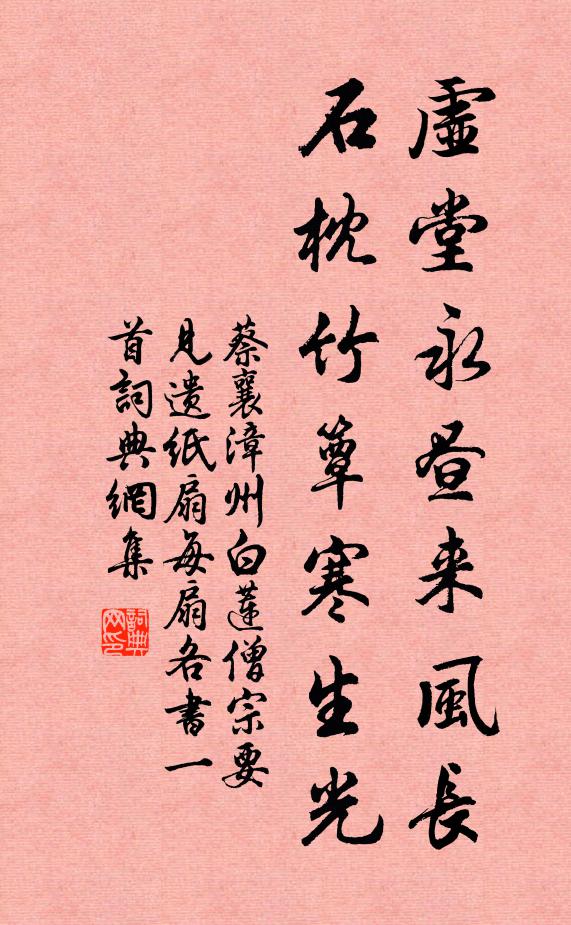 虛堂永晝来風長
石枕竹簟寒生光
蔡襄漳州白蓮僧宗要
見遺紙扇每扇各書一
首詞典網集
詞典网印